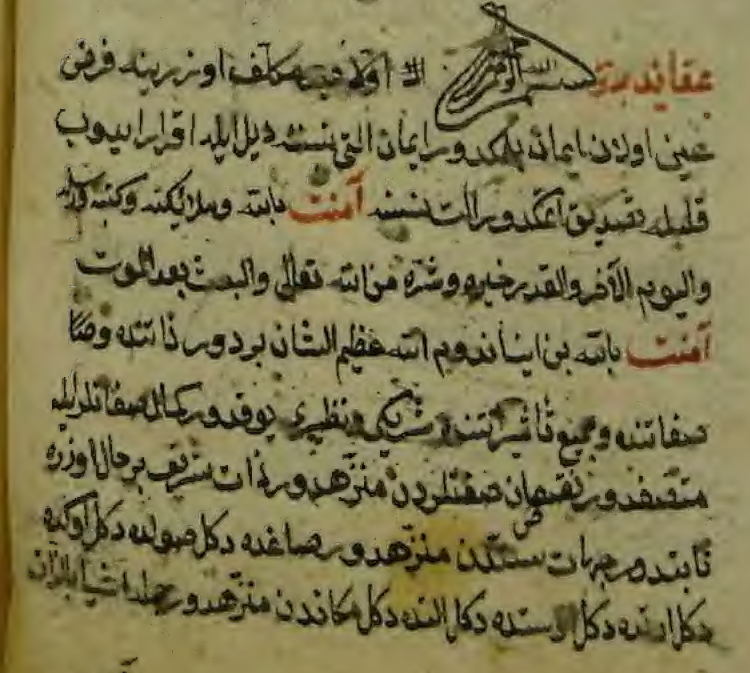 عقايد بسم الله الرحمن الرحيم اولا هر مكلف اوزرينه فرض
عين اولان ايمانى بلمكدور ايمان التى نسنه ديل ايله اقرار ايديوب
قلبله تصديق اتمكدور التى نسنه آمنت بالله وملائكته وكتبه ورسله
واليوم الآخر والقدر خيره وشره من الله تعالى والبعث بعد الموت
آمنت بالله بن ايناندويم الله عظيم الشان بردور ذاتنده
صفاتنده وجميع تأثيراتنده شريكى ونظيرى يوقدور كمال صفاتلر ايله
متصفدور نقصان صفتلردن منزهدور ذات شريف بر حال اوزره
ثابتدور جهات ستدن منزهدور صاغده دكل صولده دكل اوكده
دكل ارتده دكل اوستده دكل التده دكل مكاندن منزهدور جمله اشيا